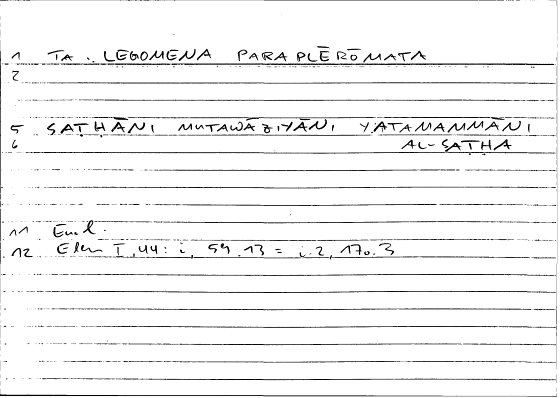 1 TA . LEGOMENA PARAPLĒRŌMATA
2
5 SAṬḤĀNI MUTAWĀZIYĀNI YATAMAMMĀNI
6 AL-SAṬḤA
11 Eucl.
12 Elem I, 44: i, 59.13 = i.2, 170.3